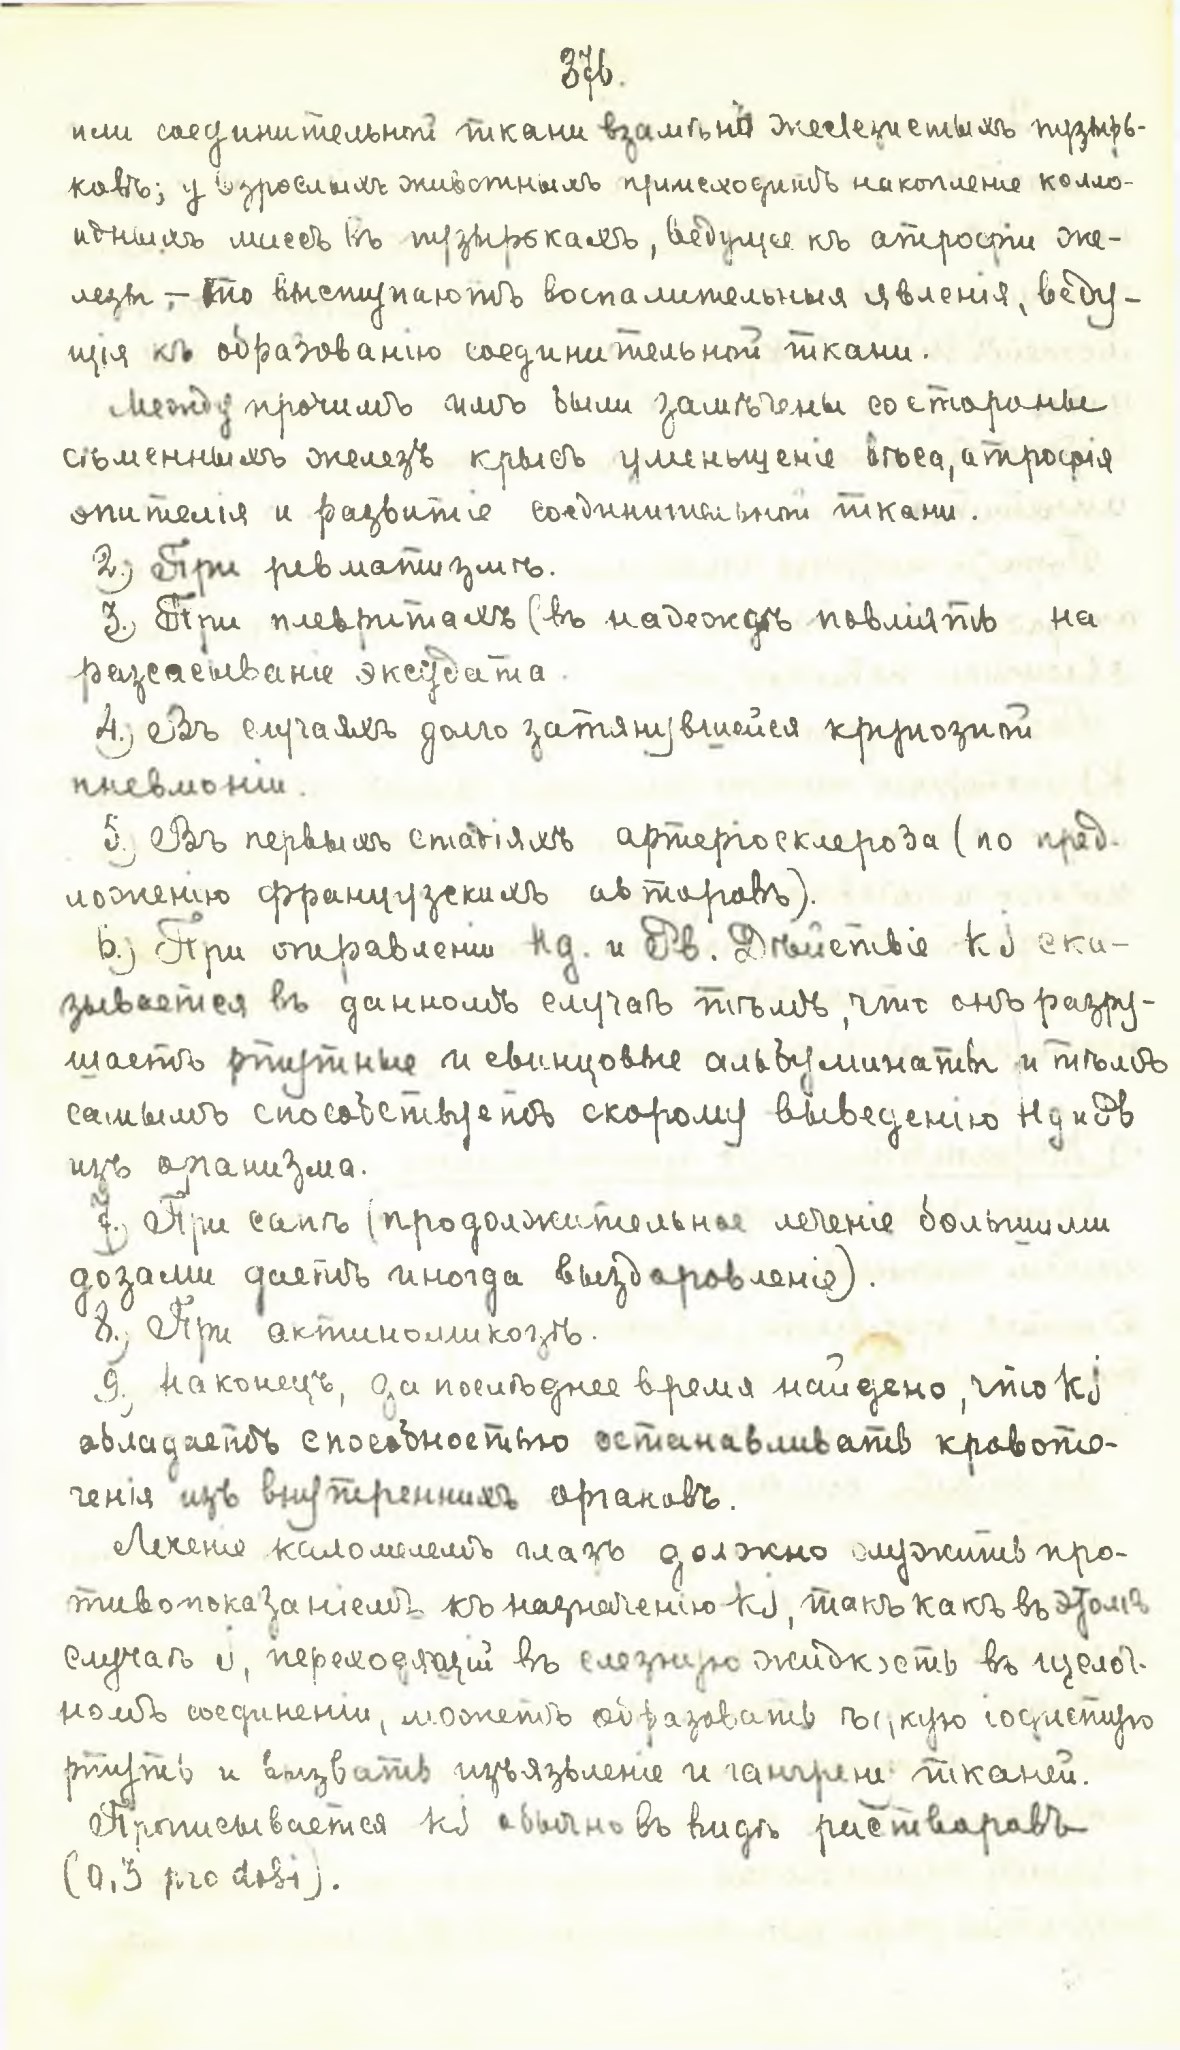 376.
или соединительной ткани взамѣнъ железистыхъ пузырь-
ковъ; у взрослыхъ животныхъ происходитъ накопленіе колло-
идныхъ массъ въ пузырькахъ, ведущее къ атрофіи же-
лезы, – то выступаютъ воспалительныя явленія, веду-
щія къ образованію соединительной ткани.
Между прочимъ имъ были замѣчены со стороны
сѣменныхъ железъ крысъ уменьшеніе вѣса, атрофія
эпителія и развитіе соединительной ткани.
2.) При ревматизмѣ.
3.) При плевритахъ (въ надеждѣ повліять на
разсасываніе эксудата.
4.) Въ случаяхъ долго затянувшейся крупозной
пневмоніи.
5.) Въ первыхъ стадіяхъ артеріосклероза (по пред-
ложенію французскихъ авторовъ).
6.) При отравленіи Hg. и Pb. Дѣйствіе KJ ска-
зывается въ данномъ случаѣ тѣмъ, что онъ разру-
шаетъ ртутные и свинцовые альбуминаты и тѣмъ
самымъ способствуетъ скорому выведенію Hg и Pb
изъ организма.
7.) При сапѣ (продолжительное леченіе большими
дозами даетъ иногда выздоровленіе).
8.) При актиномикозѣ.
9.) Наконецъ, за послѣднее время найдено, что KJ
обладаетъ способностью останавливать кровоте-
ченія изъ внутреннихъ органовъ.
Леченіе каломелемъ глазъ должно служить про-
тивопоказаніемъ къ назначенію KJ, такъ какъ въ этомъ
случаѣ J, переходящій въ слезную жидкость въ щелоч-
номъ соединеніи, можетъ образовать ѣдкую іодистую
ртуть и вызвать изъязвленіе и гангрену тканей.
Прописывается KJ обычно въ видѣ растворовъ
(0,3 pro dosi).